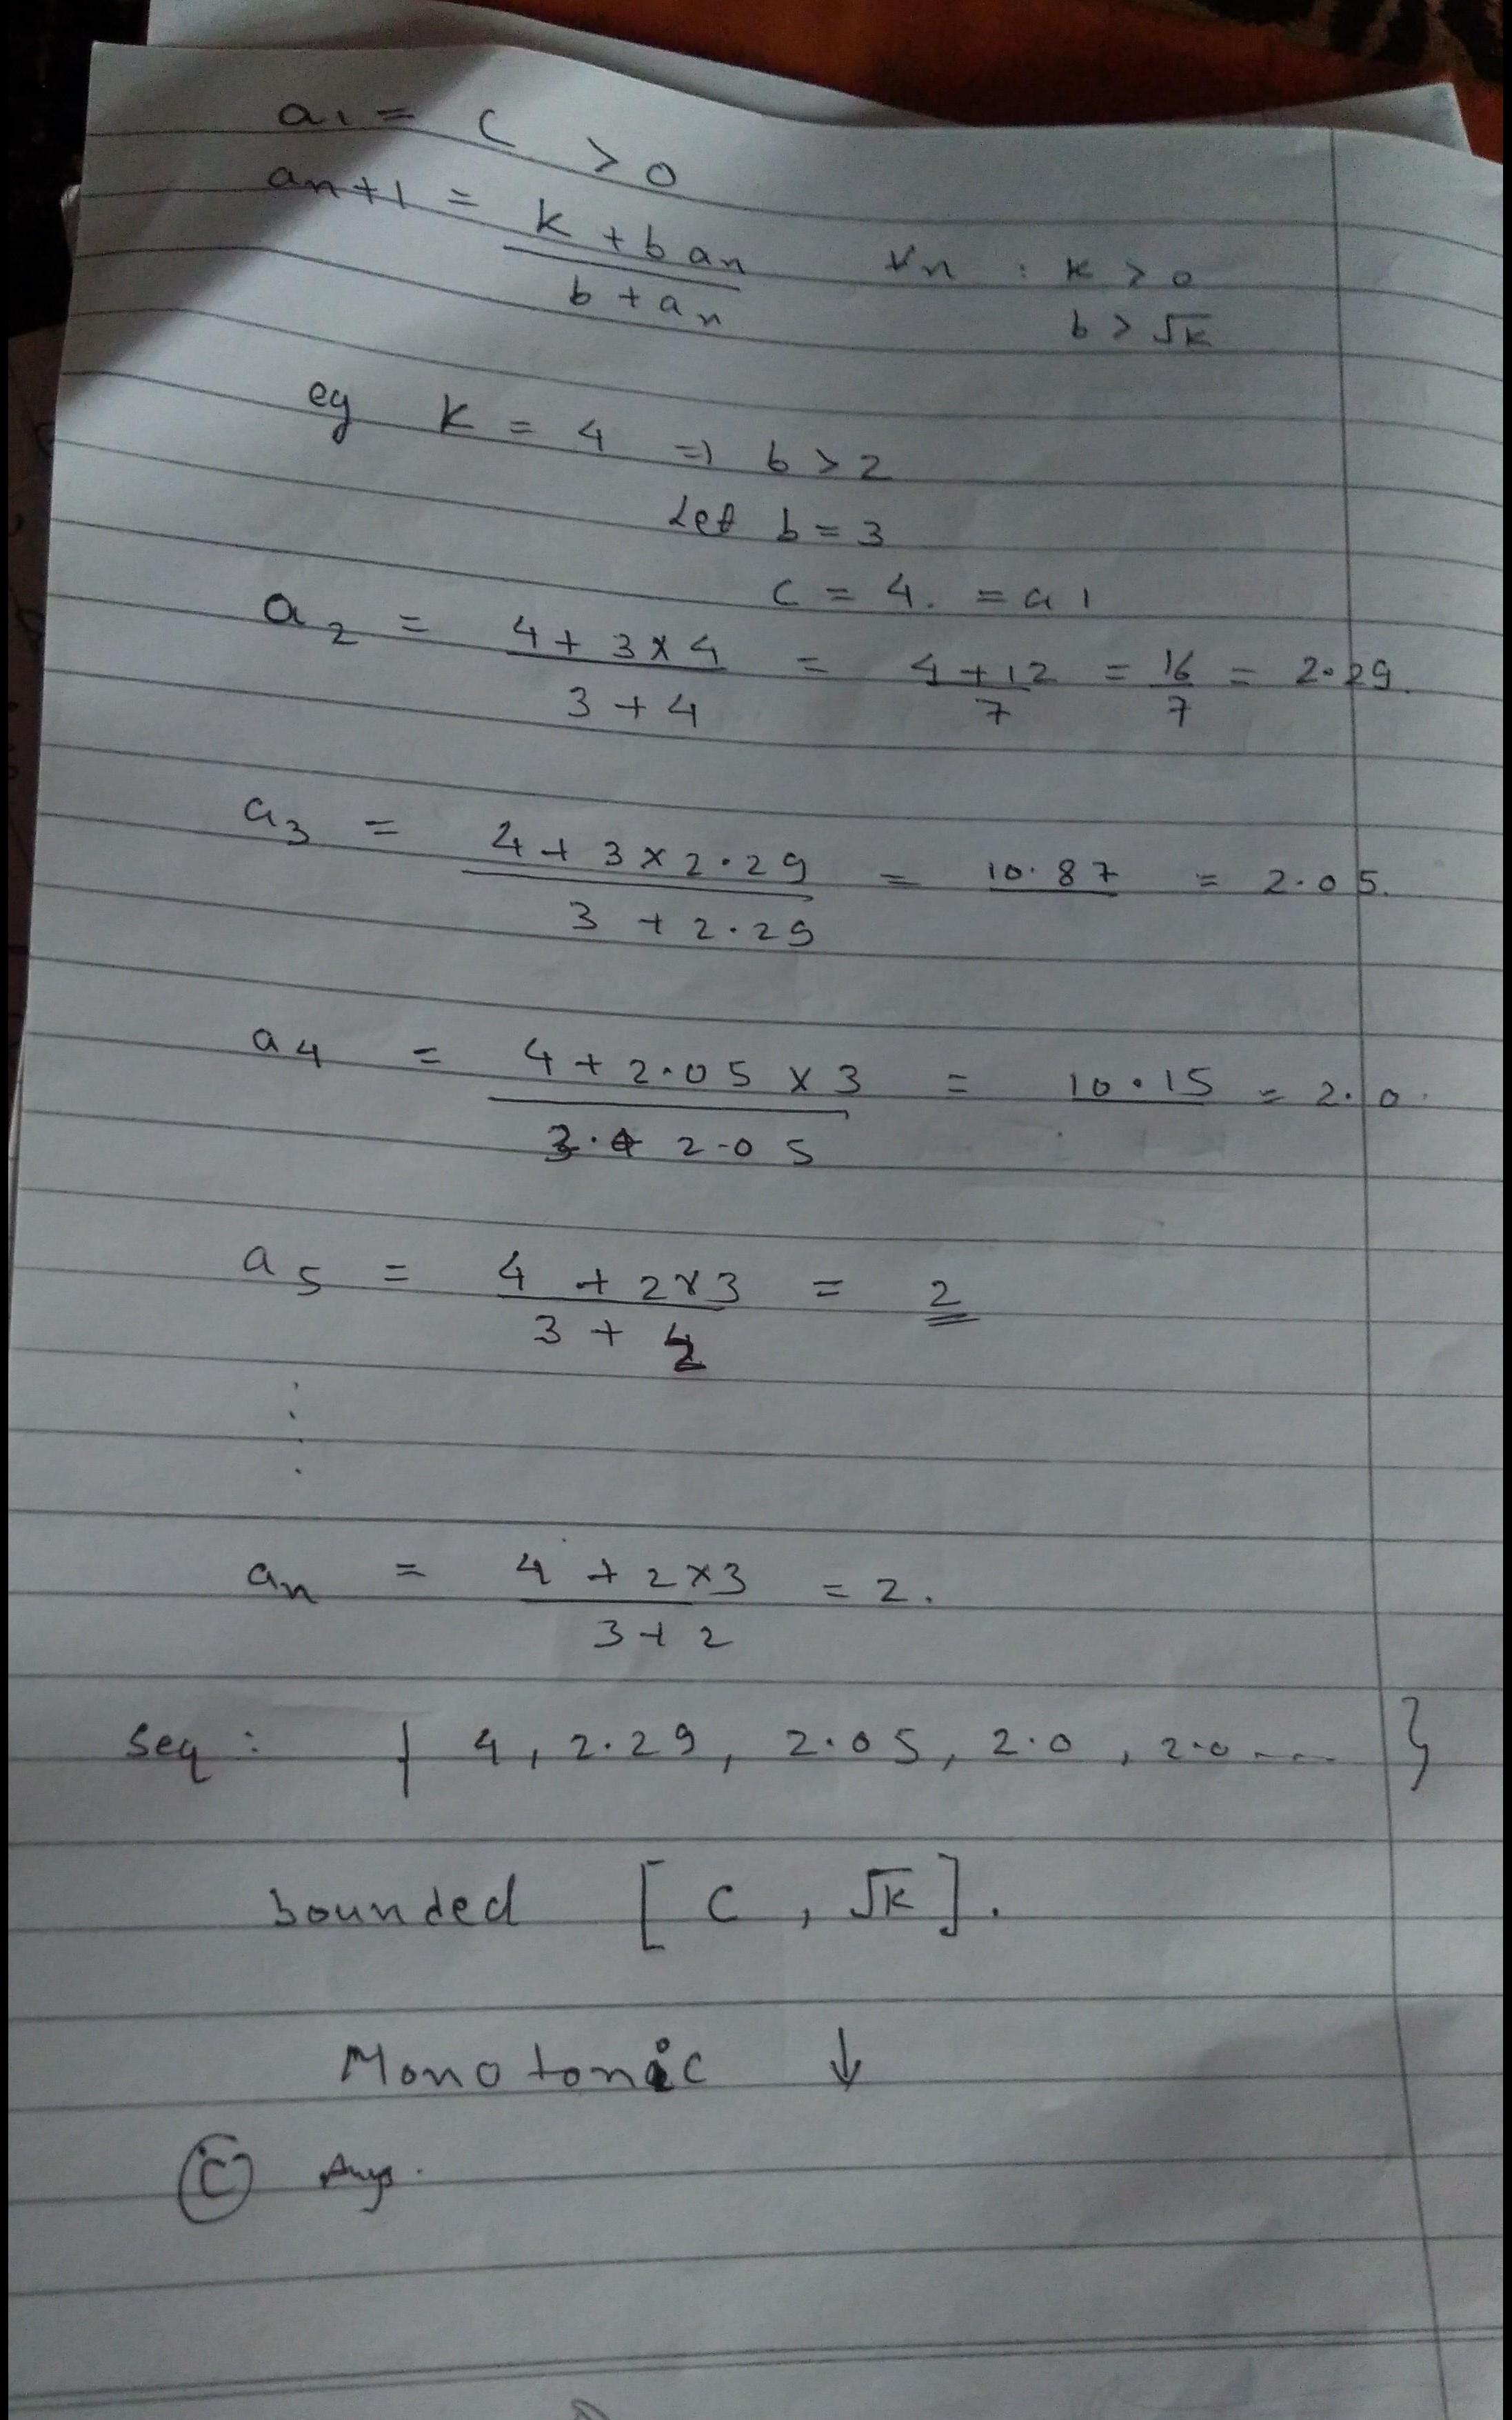 a1 = c > 0
an+1 = k + b an / b + an ∀n : k > 0
b > √k
eg k = 4 ⇒ b > 2
Let b = 3
c = 4. = a1
a2 = 4 + 3 × 4 / 3 + 4 = 4 + 12 / 7 = 16 / 7 = 2.29.
a3 = 4 + 3 × 2.29 / 3 + 2.29 = 10.87 = 2.05.
a4 = 4 + 2.05 × 3 / 3 + 2.05 = 10.15 = 2.0.
a5 = 4 + 2×3 / 3 + 2 = 2
⋮
an = 4 + 2×3 / 3 + 2 = 2.
seq : { 4, 2.29, 2.05, 2.0, 2.0 ... }
bounded [ c , √k ].
Monotonic ↓
(C) Ans.